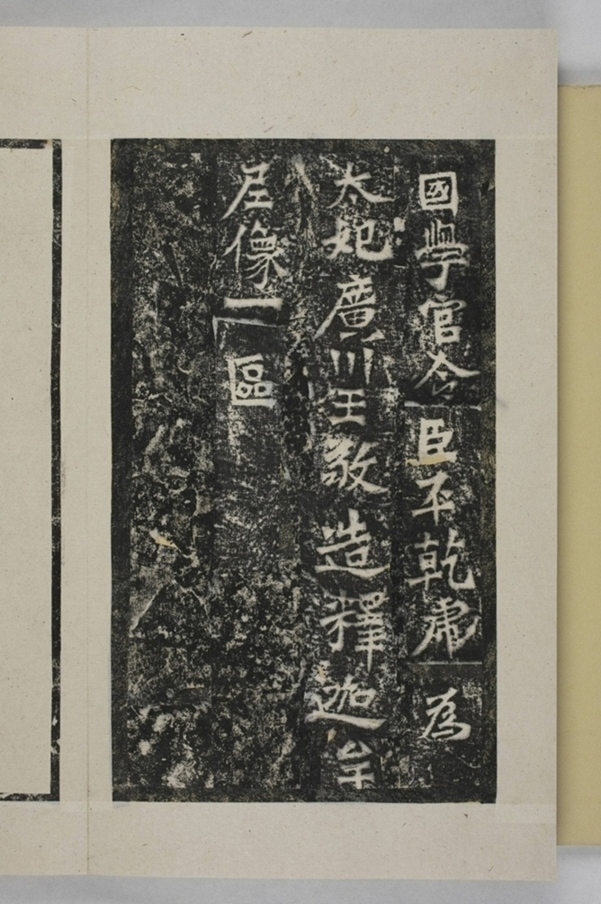 國學官令臣平乾虎為
太妃廣川王敬造釋迦牟
尼像一區